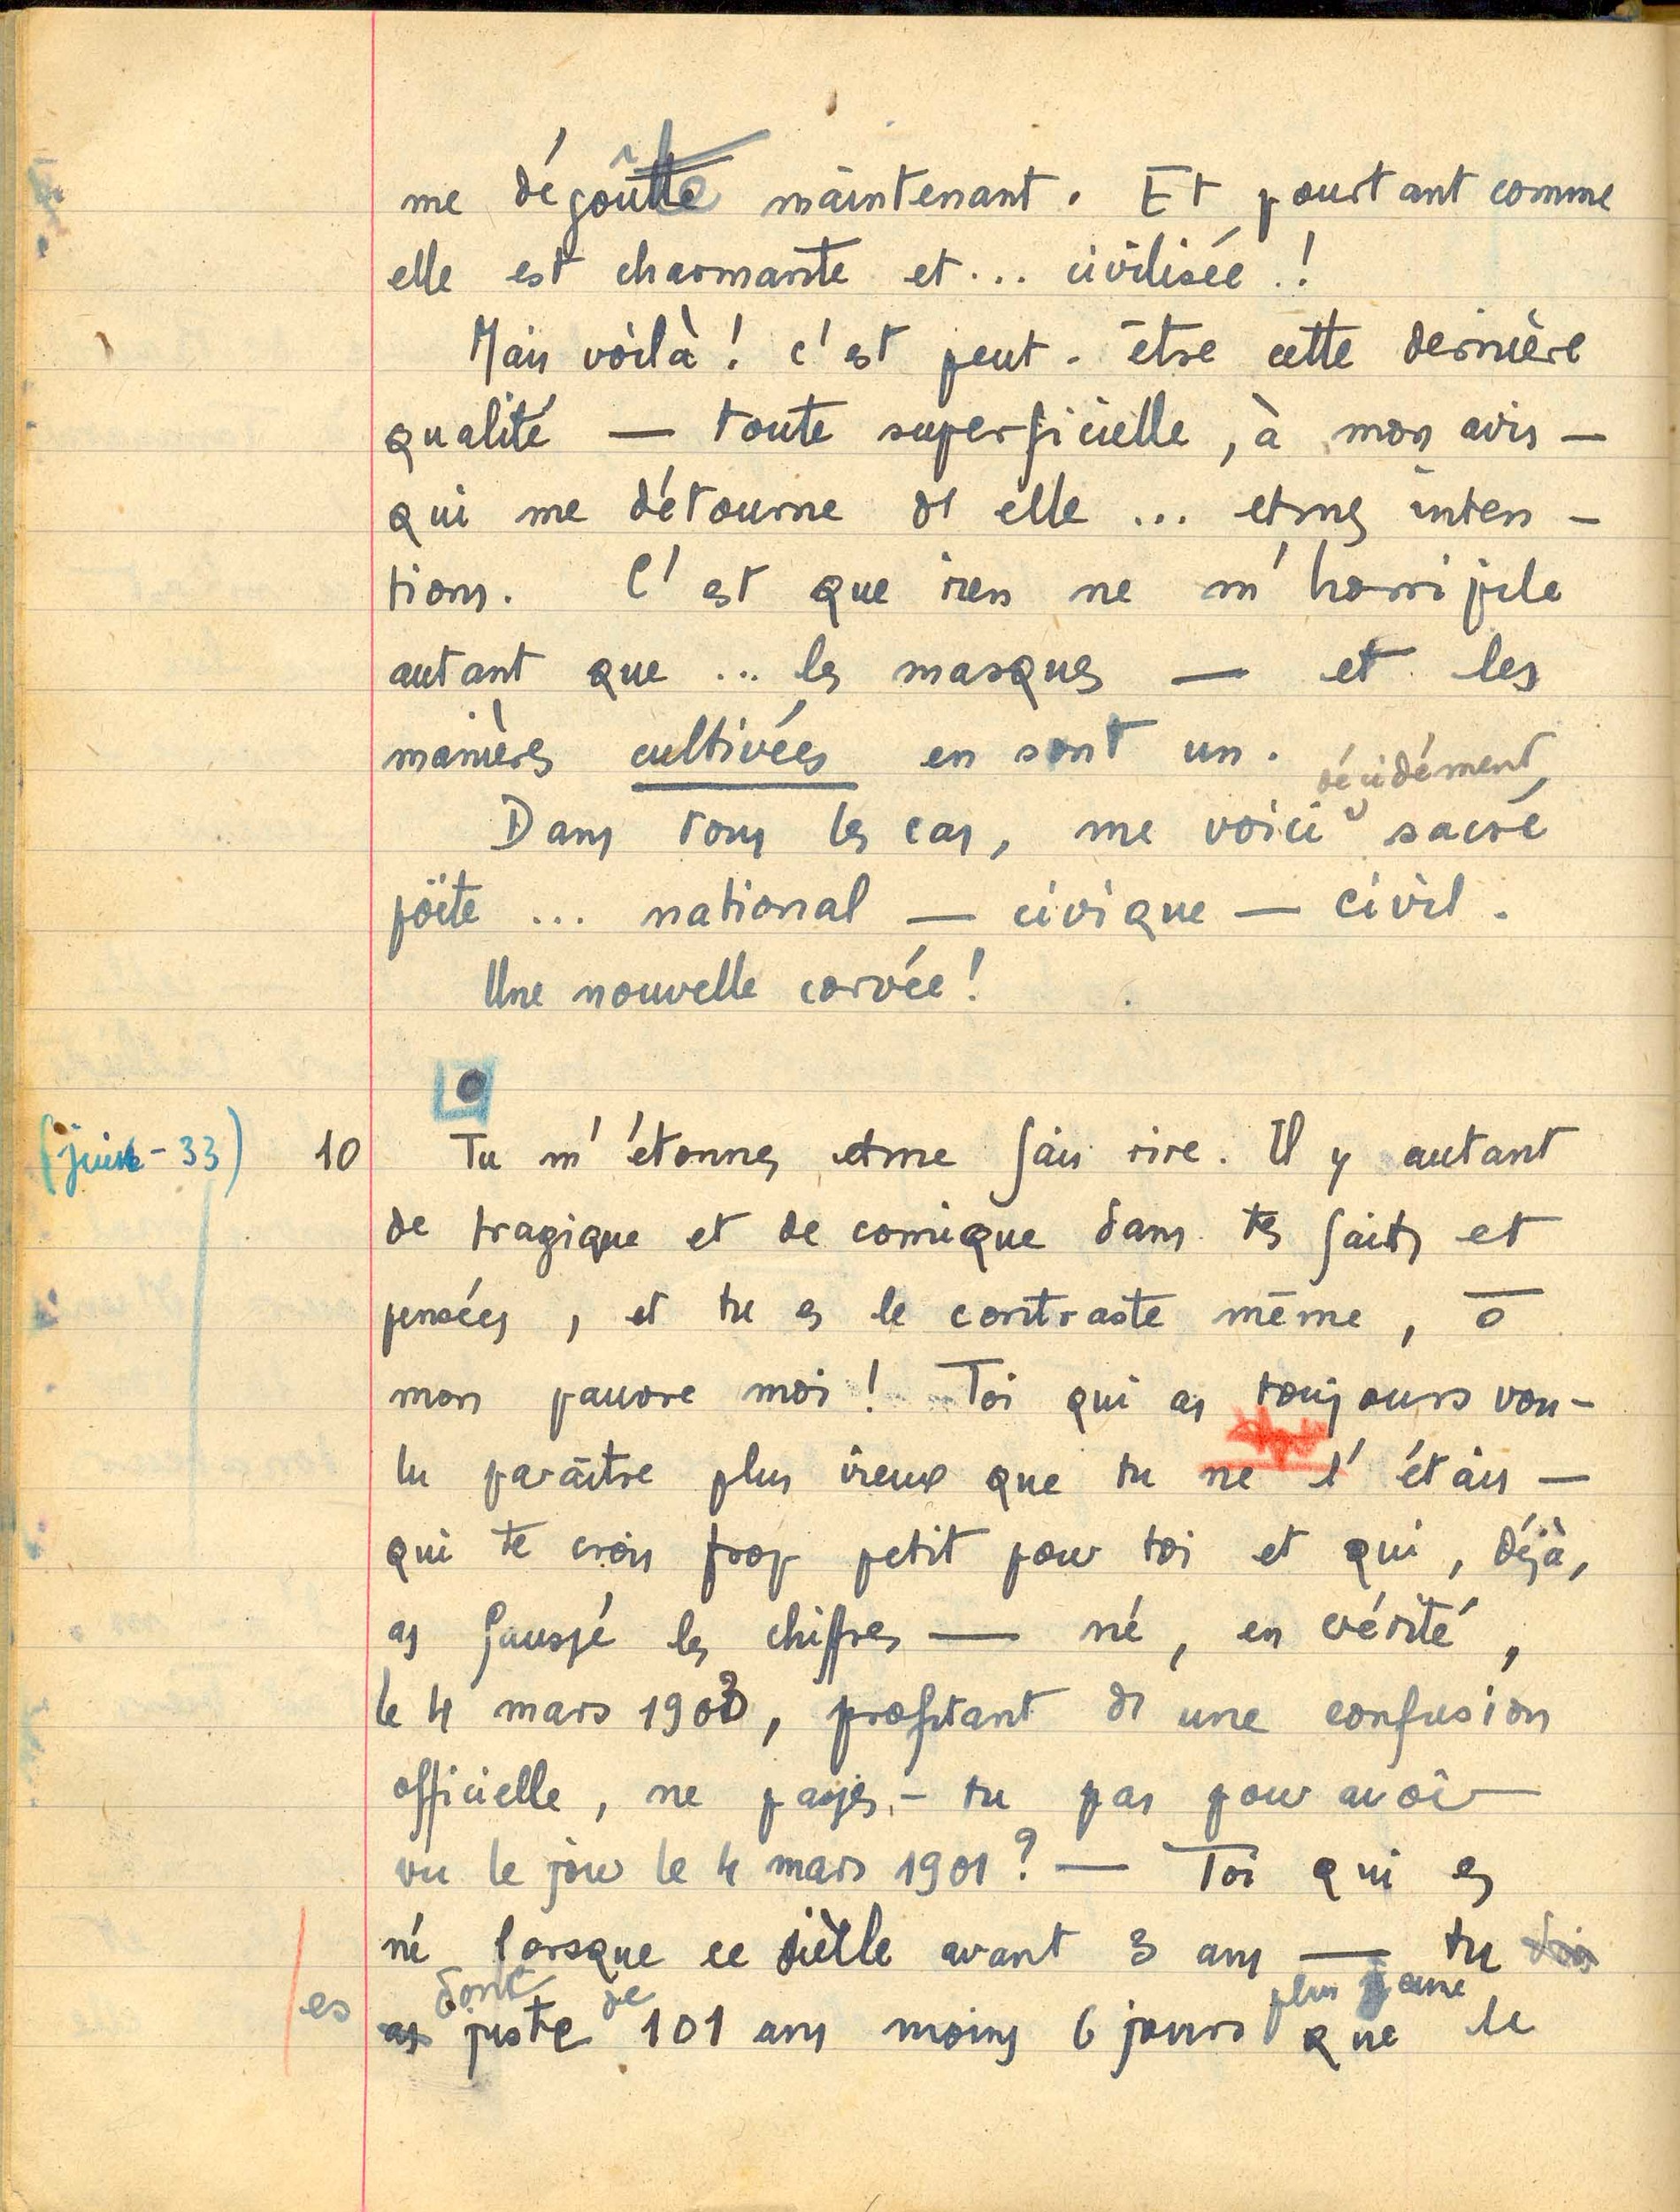 me dégoûte maintenant. Et pourtant comme
elle est charmante et... civilisée!
Mais voilà! c'est peut-être cette dernière
qualité — toute superficielle, à mon avis —
qui me détourne d'elle... et mes inten-
tions. C'est que rien ne m'horripile
autant que... les masques — et les
manières cultivées en sont un.
Dans tous les cas, me voici décidément sacré
poëte... national — civique — civil.
Une nouvelle corvée!
(juin - 33) 10 Tu m'étonnes et me fais rire. Il y autant
de tragique et de comique dans tes faits et
pensées, et tu es le contraste même, ô
mon pauvre moi! Toi qui as toujours vou-
lu paraître plus vieux que tu ne l'étais —
qui te crois trop petit pour toi et qui, déjà,
as faussé les chiffres — né, en vérité,
le 4 mars 1903, profitant d'une confusion
officielle, ne passes-tu pas pour avoir
vu le jour le 4 mars 1901? — Toi qui es
né lorsque ce siècle avant 3 ans — tu
es donc juste de 101 ans moins 6 jours plus jeune que le